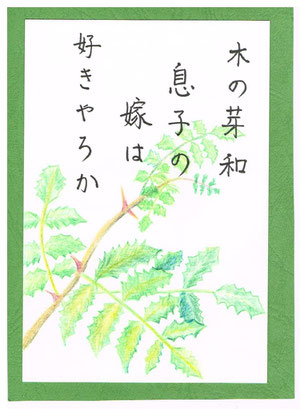 木の芽和
息子の
嫁は
好きやろか